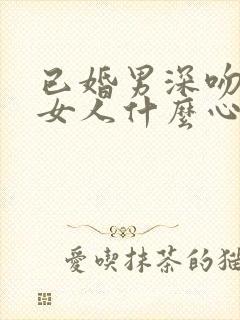 已婚男深吻
女人什麼心
愛喫抹茶的貓